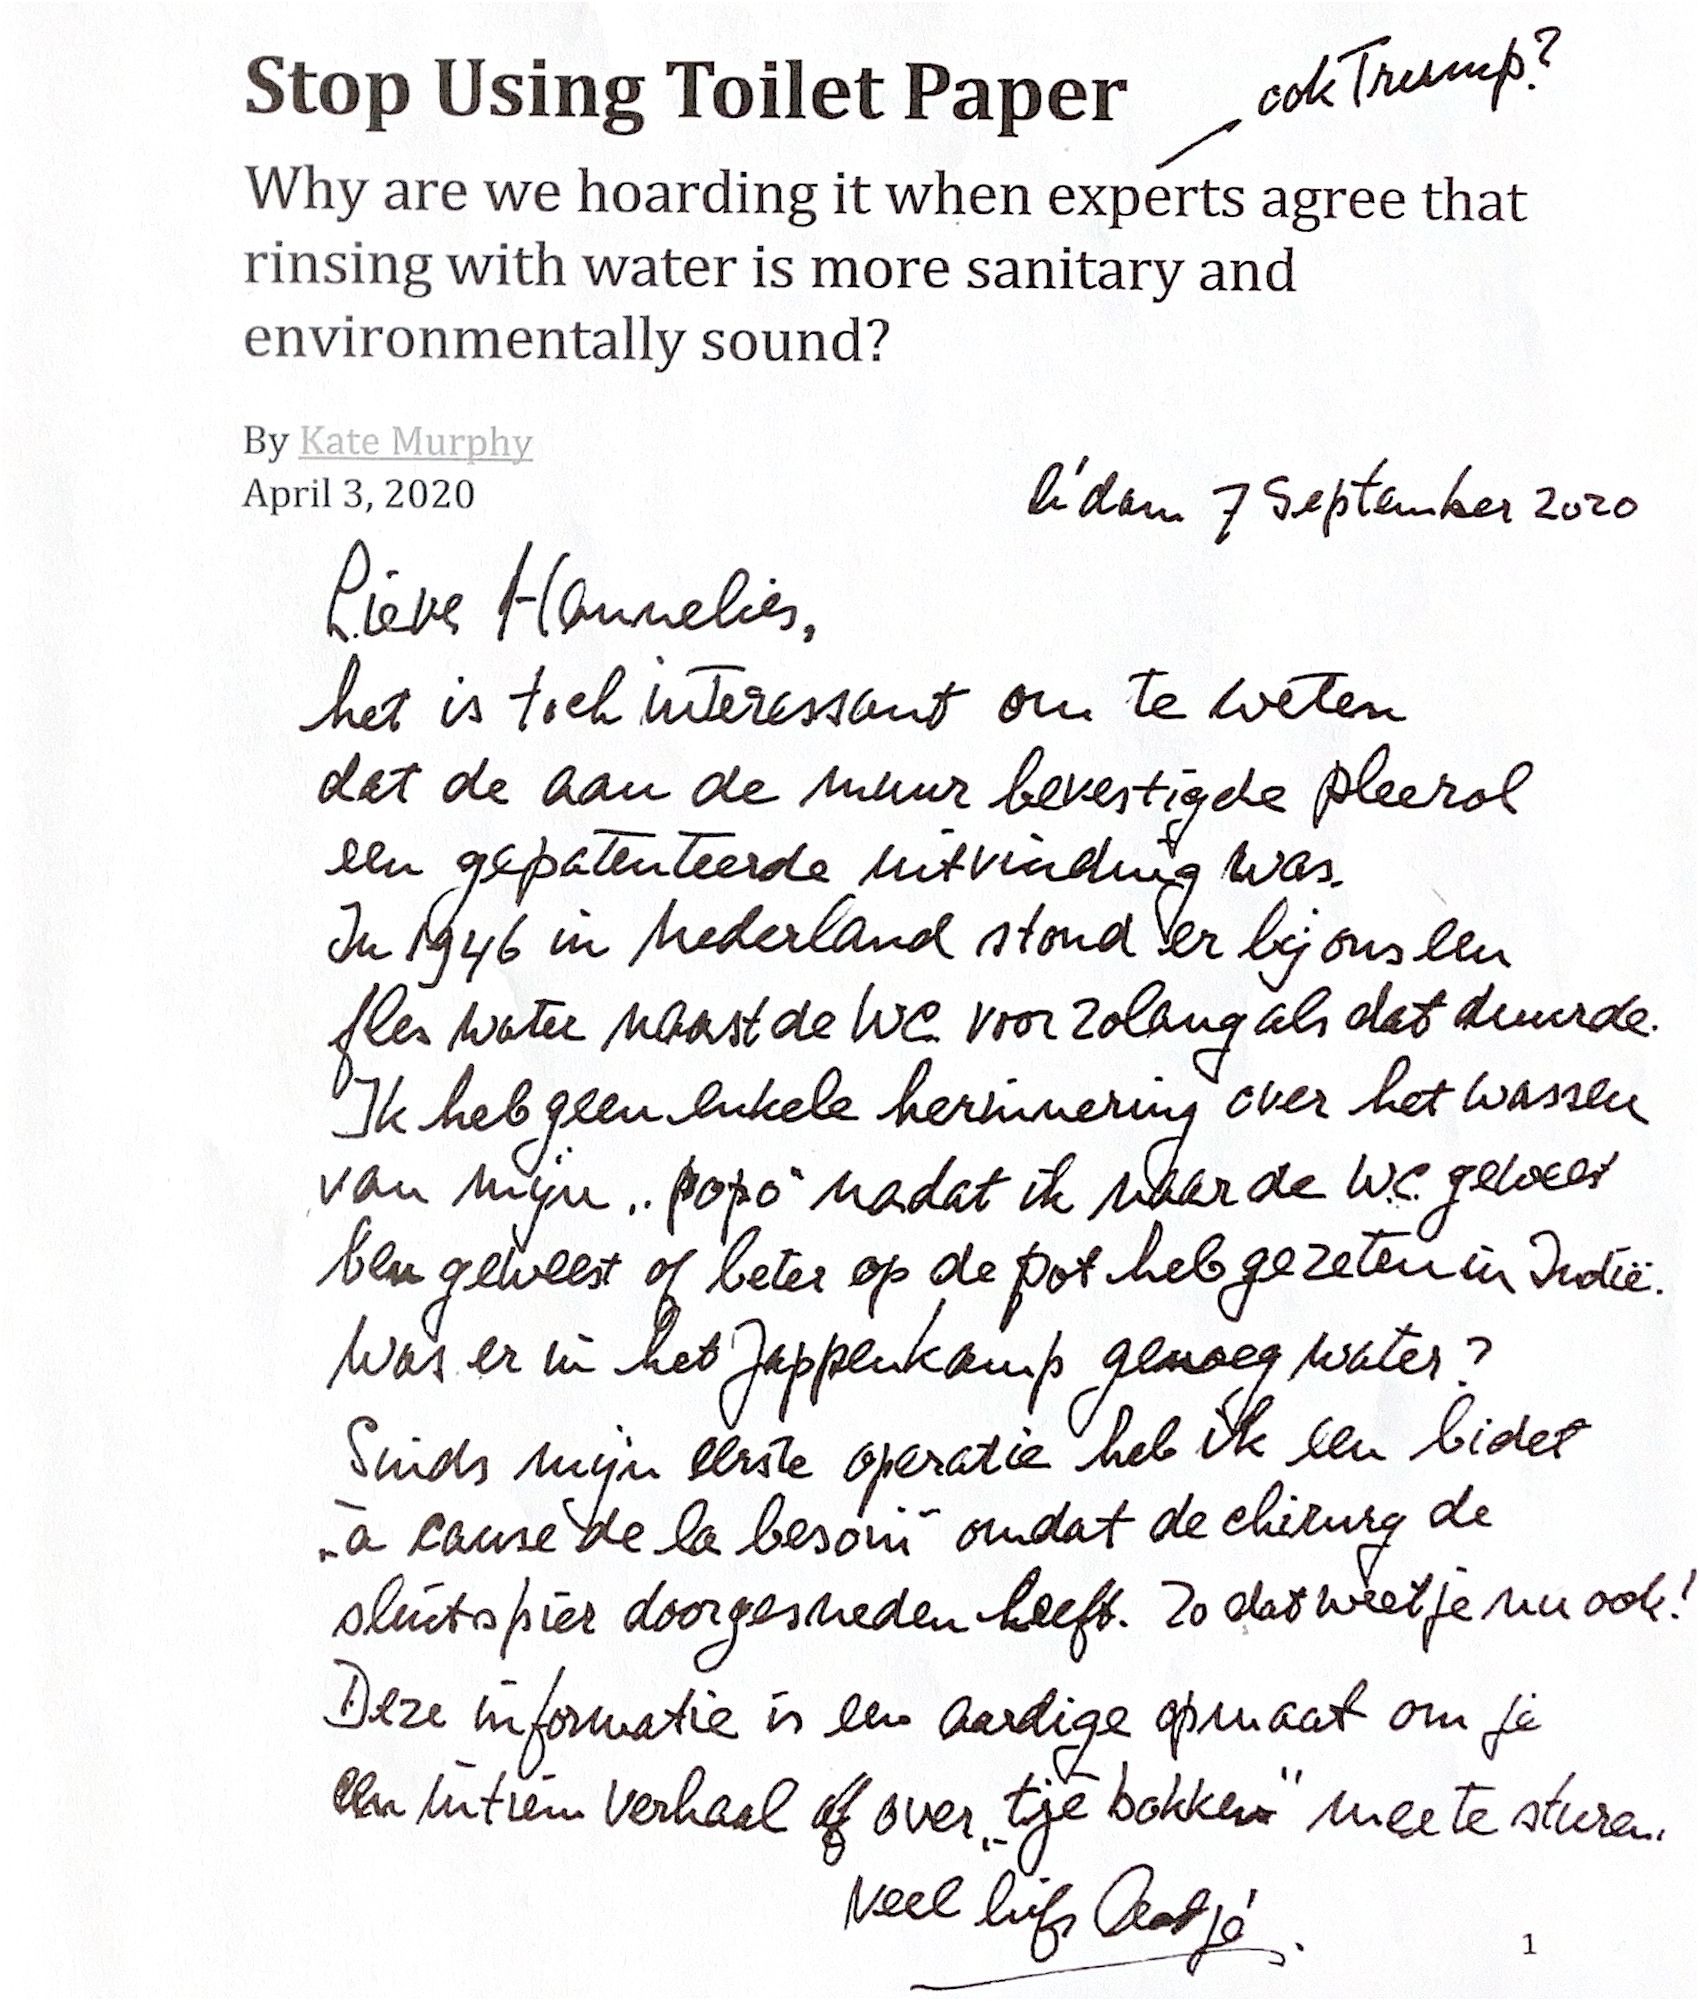 Stop Using Toilet Paper
ook Trump?
Why are we hoarding it when experts agree that
rinsing with water is more sanitary and
environmentally sound?
By Kate Murphy
April 3, 2020
7 September 2020
Lieve Hannelies,
het is toch interessant om te weten
dat de aan de muur bevestigde pleerol
een gepatenteerde uitvinding was.
In 1946 in Nederland stond er bij ons een
fles water naast de WC voor zolang als dat duurde.
Ik heb geen enkele herinnering over het wassen
van mijn „popo" nadat ik naar de W.C. geweest
ben geweest of beter op de pot heb gezeten in Indië.
Was er in het Jappenkamp genoeg water?
Sinds mijn eerste operatie heb ik een bidet
„à cause de la besoin" omdat de chirurg de
sluitspier doorgesneden heeft. Zo dat weet je nu ook!
Deze informatie is een aardige opmaat om je
een intiem verhaal over „tjébokken" mee te sturen.
Veel liefs
1